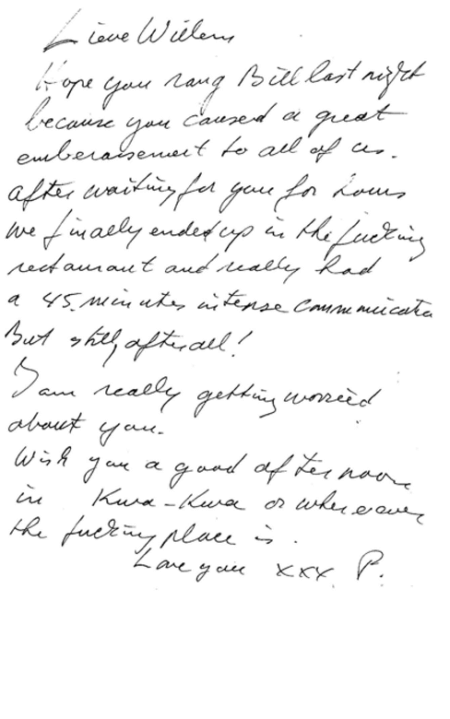 Lieve Willem
Hope you rang Bill last night
because you caused a great
emberaisement to all of us.
After waiting for you for hours
we finally ended up in the fucking
restaurant and really had
a 45. minutes intense communicatio
But still, after all!
I am really getting worried
about you.
Wish you a good afternoon
in Kwa-Kwa or whereever
the fucking place is.
Love you xxx P.